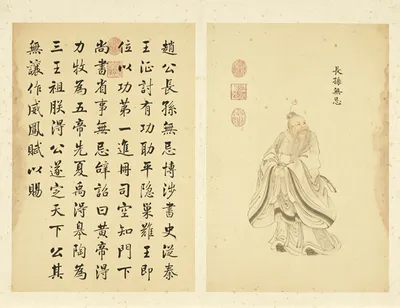 長孫無忌
趙公長孫無忌博涉書史從秦
王征討有功助平隱巢難王即
位以功第一進冊司空知門下
尚書省事無忌辭詔曰黃帝得
力牧為五帝先夏禹得皋陶為
三王祖朕得公遂定天下公其
無讓作威鳳賦以賜